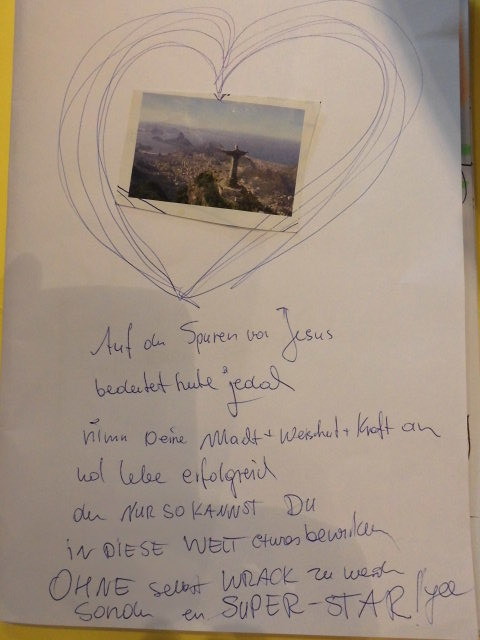 Auf den Spuren von Jesus
bedeutet heute jedoch
nimm Deine Macht + Weisheit + Kraft an
und lebe erfolgreich
denn NUR SO KANNST DU
in DIESE WELT etwas bewirken
OHNE selbst WRACK zu werden
sondern ein SUPER-STAR!